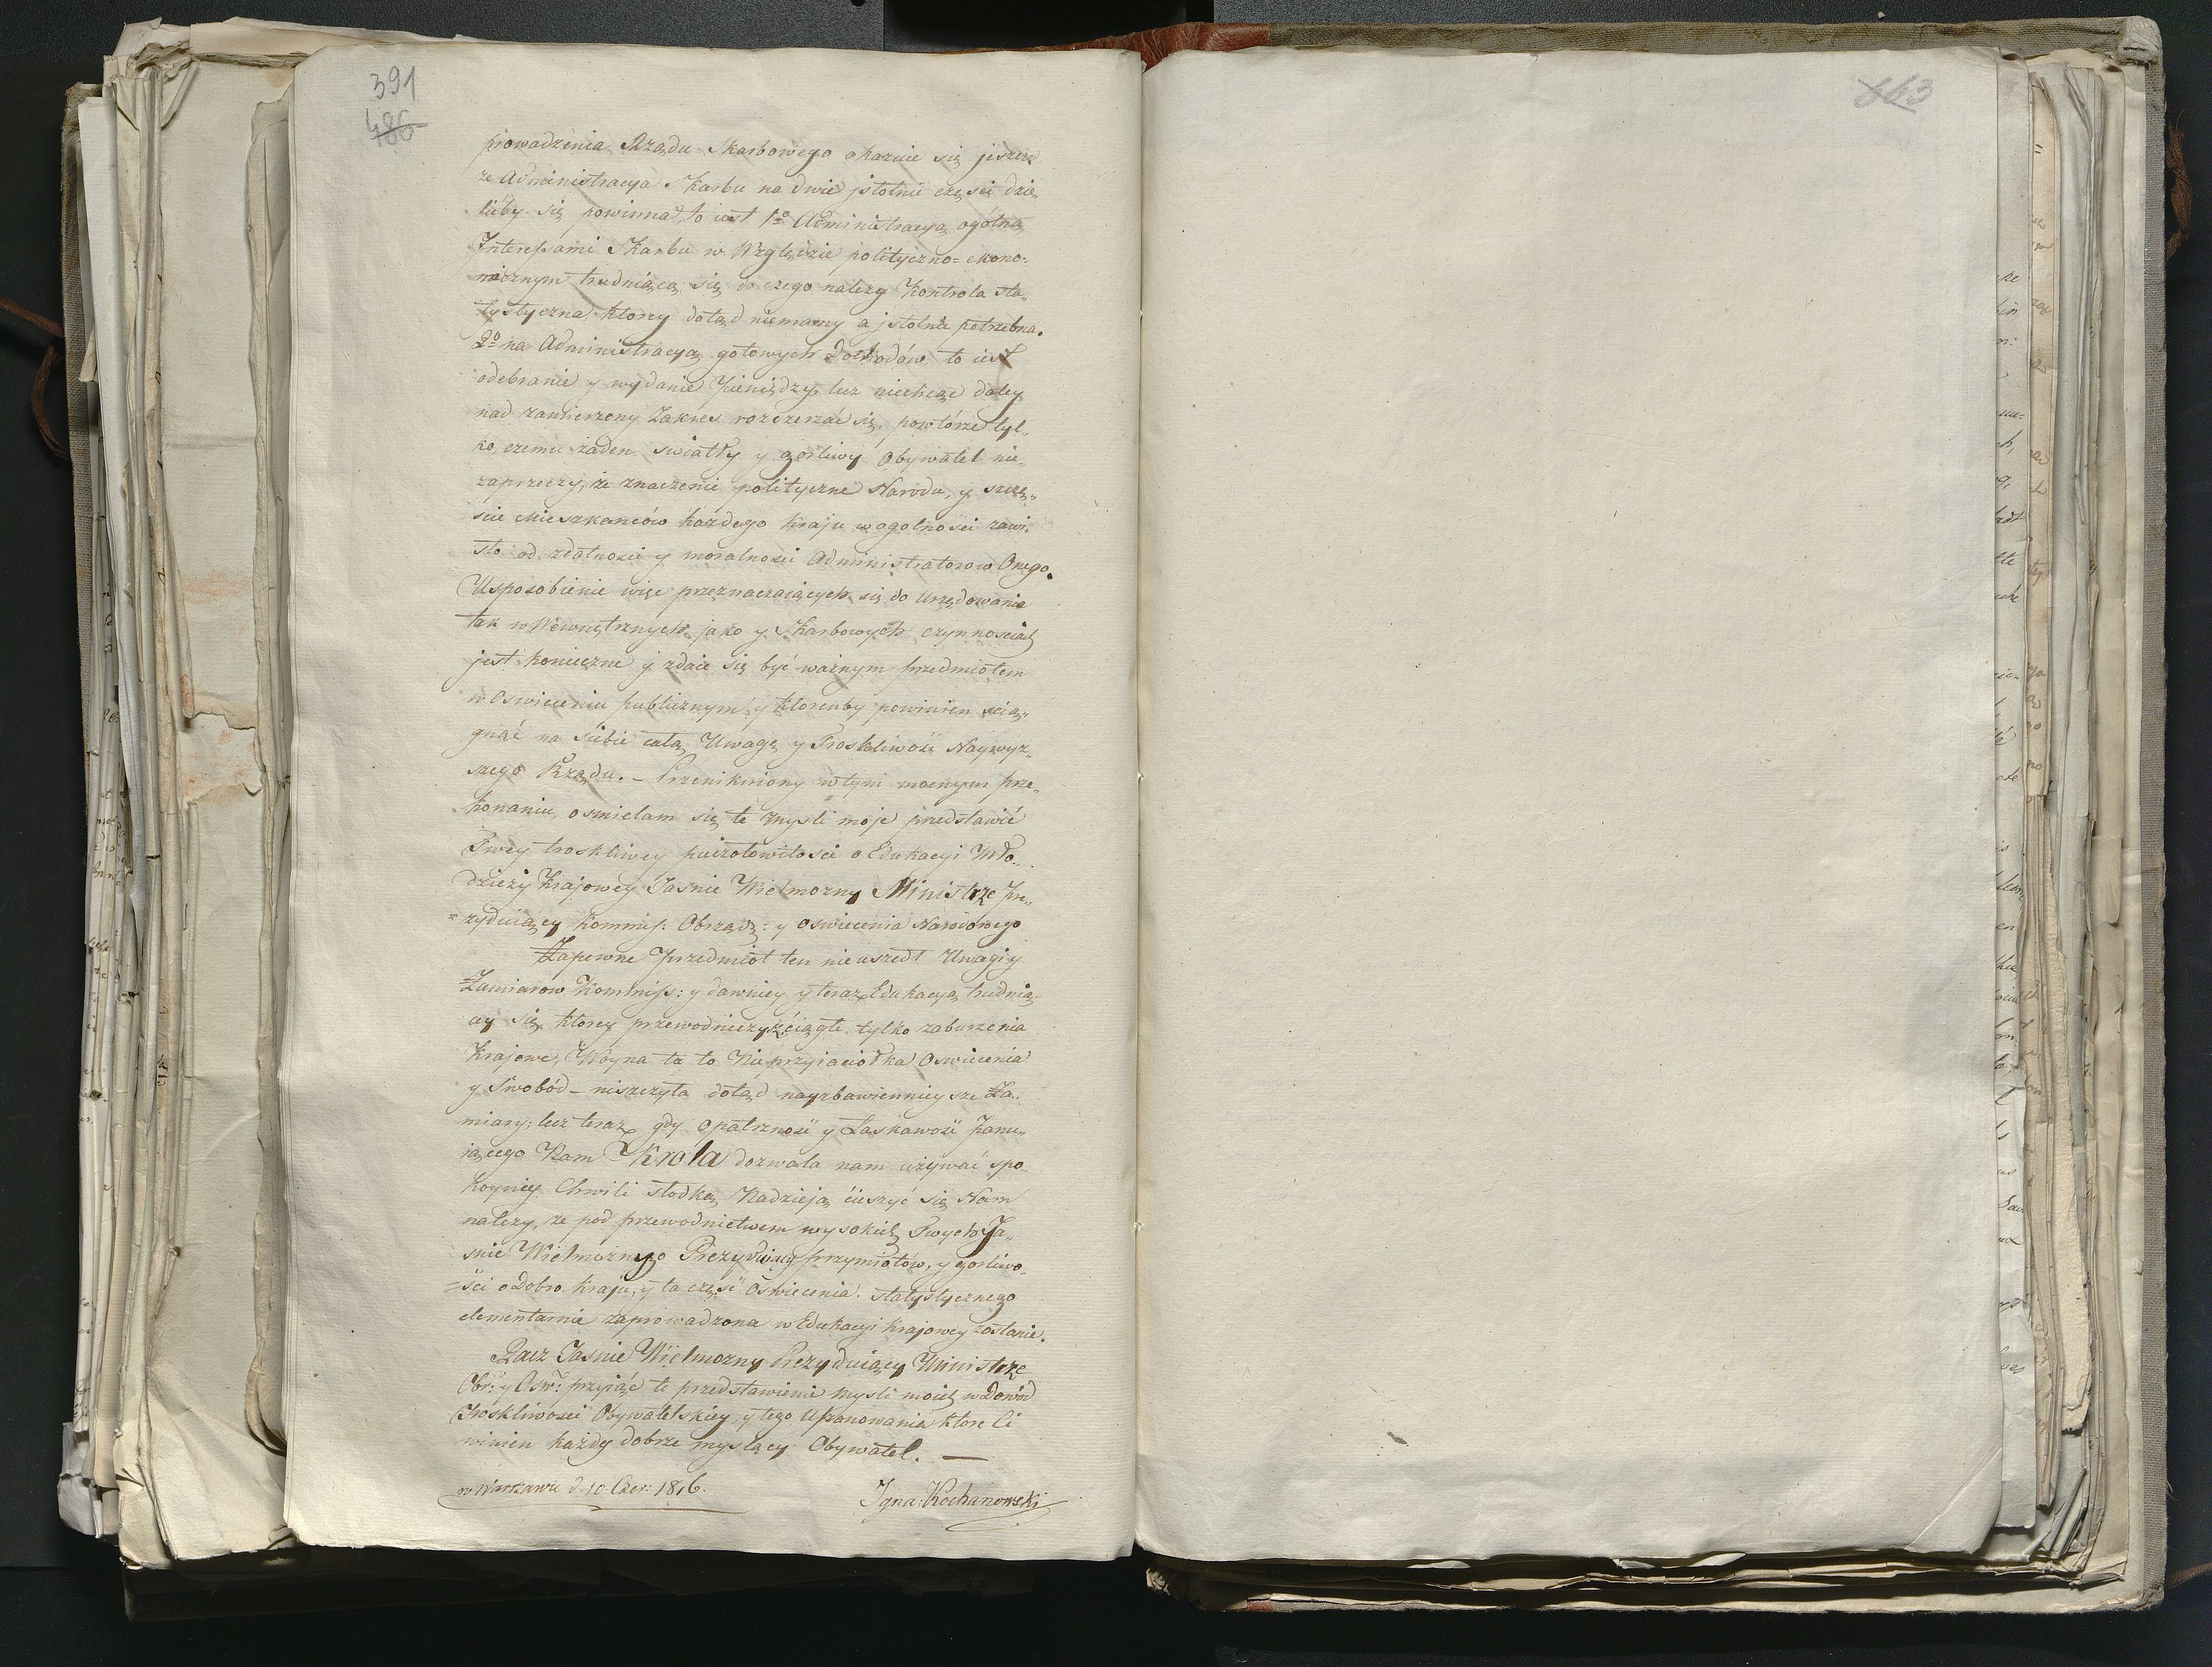 391
486
prowadzenia Rządu Skarbowego okazuie się jeszcze
że Administracya Skarbu na dwie jstotnie części dzie„
lićby się powinna to iest 1o Administracyą ogólną
Interessami Skarbu w Względzie polityczno=ekono:
micznym trudniącą się do czego należy Kontrola sta„
tystyczna ktorey dotąd niemamy a jstotnie potrzebna.
2o na Administracyą gotowych Dochodów, to iest
odebranie y wydanie Pieniędzy, lecz niechcąc daley
nad zamierzony Zakres rozszerzać się, powtórze tyl„
ko, czemu żaden swiatły y godliwy Obywatel nie„
zaprzeczy, że znaczenie polityczne Narodu, y szczę„
scie Mieszkanców każdego Kraju w ogolnosci zawi„
sło od zdatnosci y moralnosci Administratorow Onego.
Usposobienie więc przeznaczaiących się do Urzędowania
tak w Wewnętrznych jako y Skarbowych czynnosciach
jest konieczne y zdaie się być ważnym przedmiotem
w Oswieceniu publicznym y ktorenby powinien scią„
gnąć na siebie całą Uwagę y Troskliwość Naywyż„
szego Rządu. – Przenikniony w tym mocnym prze„
konaniu, osmielam się te mysli moje przedstawić
Twey troskliwey pieczołowitosci o Edukacyi Mło„
dzieży Krajowey Jasnie Wielmożny Ministrze Pre„
=zyduiący Kommiss: Obrządz: y Oswiecenia Narodowego
Zapewne Przedmiot ten nieuszedł Uwagi y
Zamiarow Kommiss: y dawniey y teraz Edukacyą trudnią„
cey się, ktorey przewodniczysz ciągłe tylko zaburzenia
Krajowe, Woyna ta to Nieprzyiaciołka Oswiecenia
y Swobód – niszczyła dotąd nayzbawiennieysze Za„
miary; lecz teraz gdy Opatrzność y Łaskawość Panu„
iącego Nam Króla dozwala nam używać spo„
koyney Chwili słodką Nadzieją cieszyć się Nam
należy, że pod przewodnictwem wysokich Twych Ja„
snie Wielmożnego Prezyduiącego przymiotów, y gorliwo„
=ści o Dobro Kraju, y ta część Oswiecenia statystycznego
elementarnie zaprowadzona w Edukacyi Krajowey zostanie.
Racz Jasnie Wielmożny Prezyduiący Ministrze
Obr: y Osw: przyiąć te przedstawienie mysli moich w Dowód
Troskliwosci Obywatelskiey, y tego Uszanowania ktore Ci
winien każdy dobrze myslący Obywatel. —
w Warszawie d. 10 Czer: 1816.
Igna: Kochanowski
663